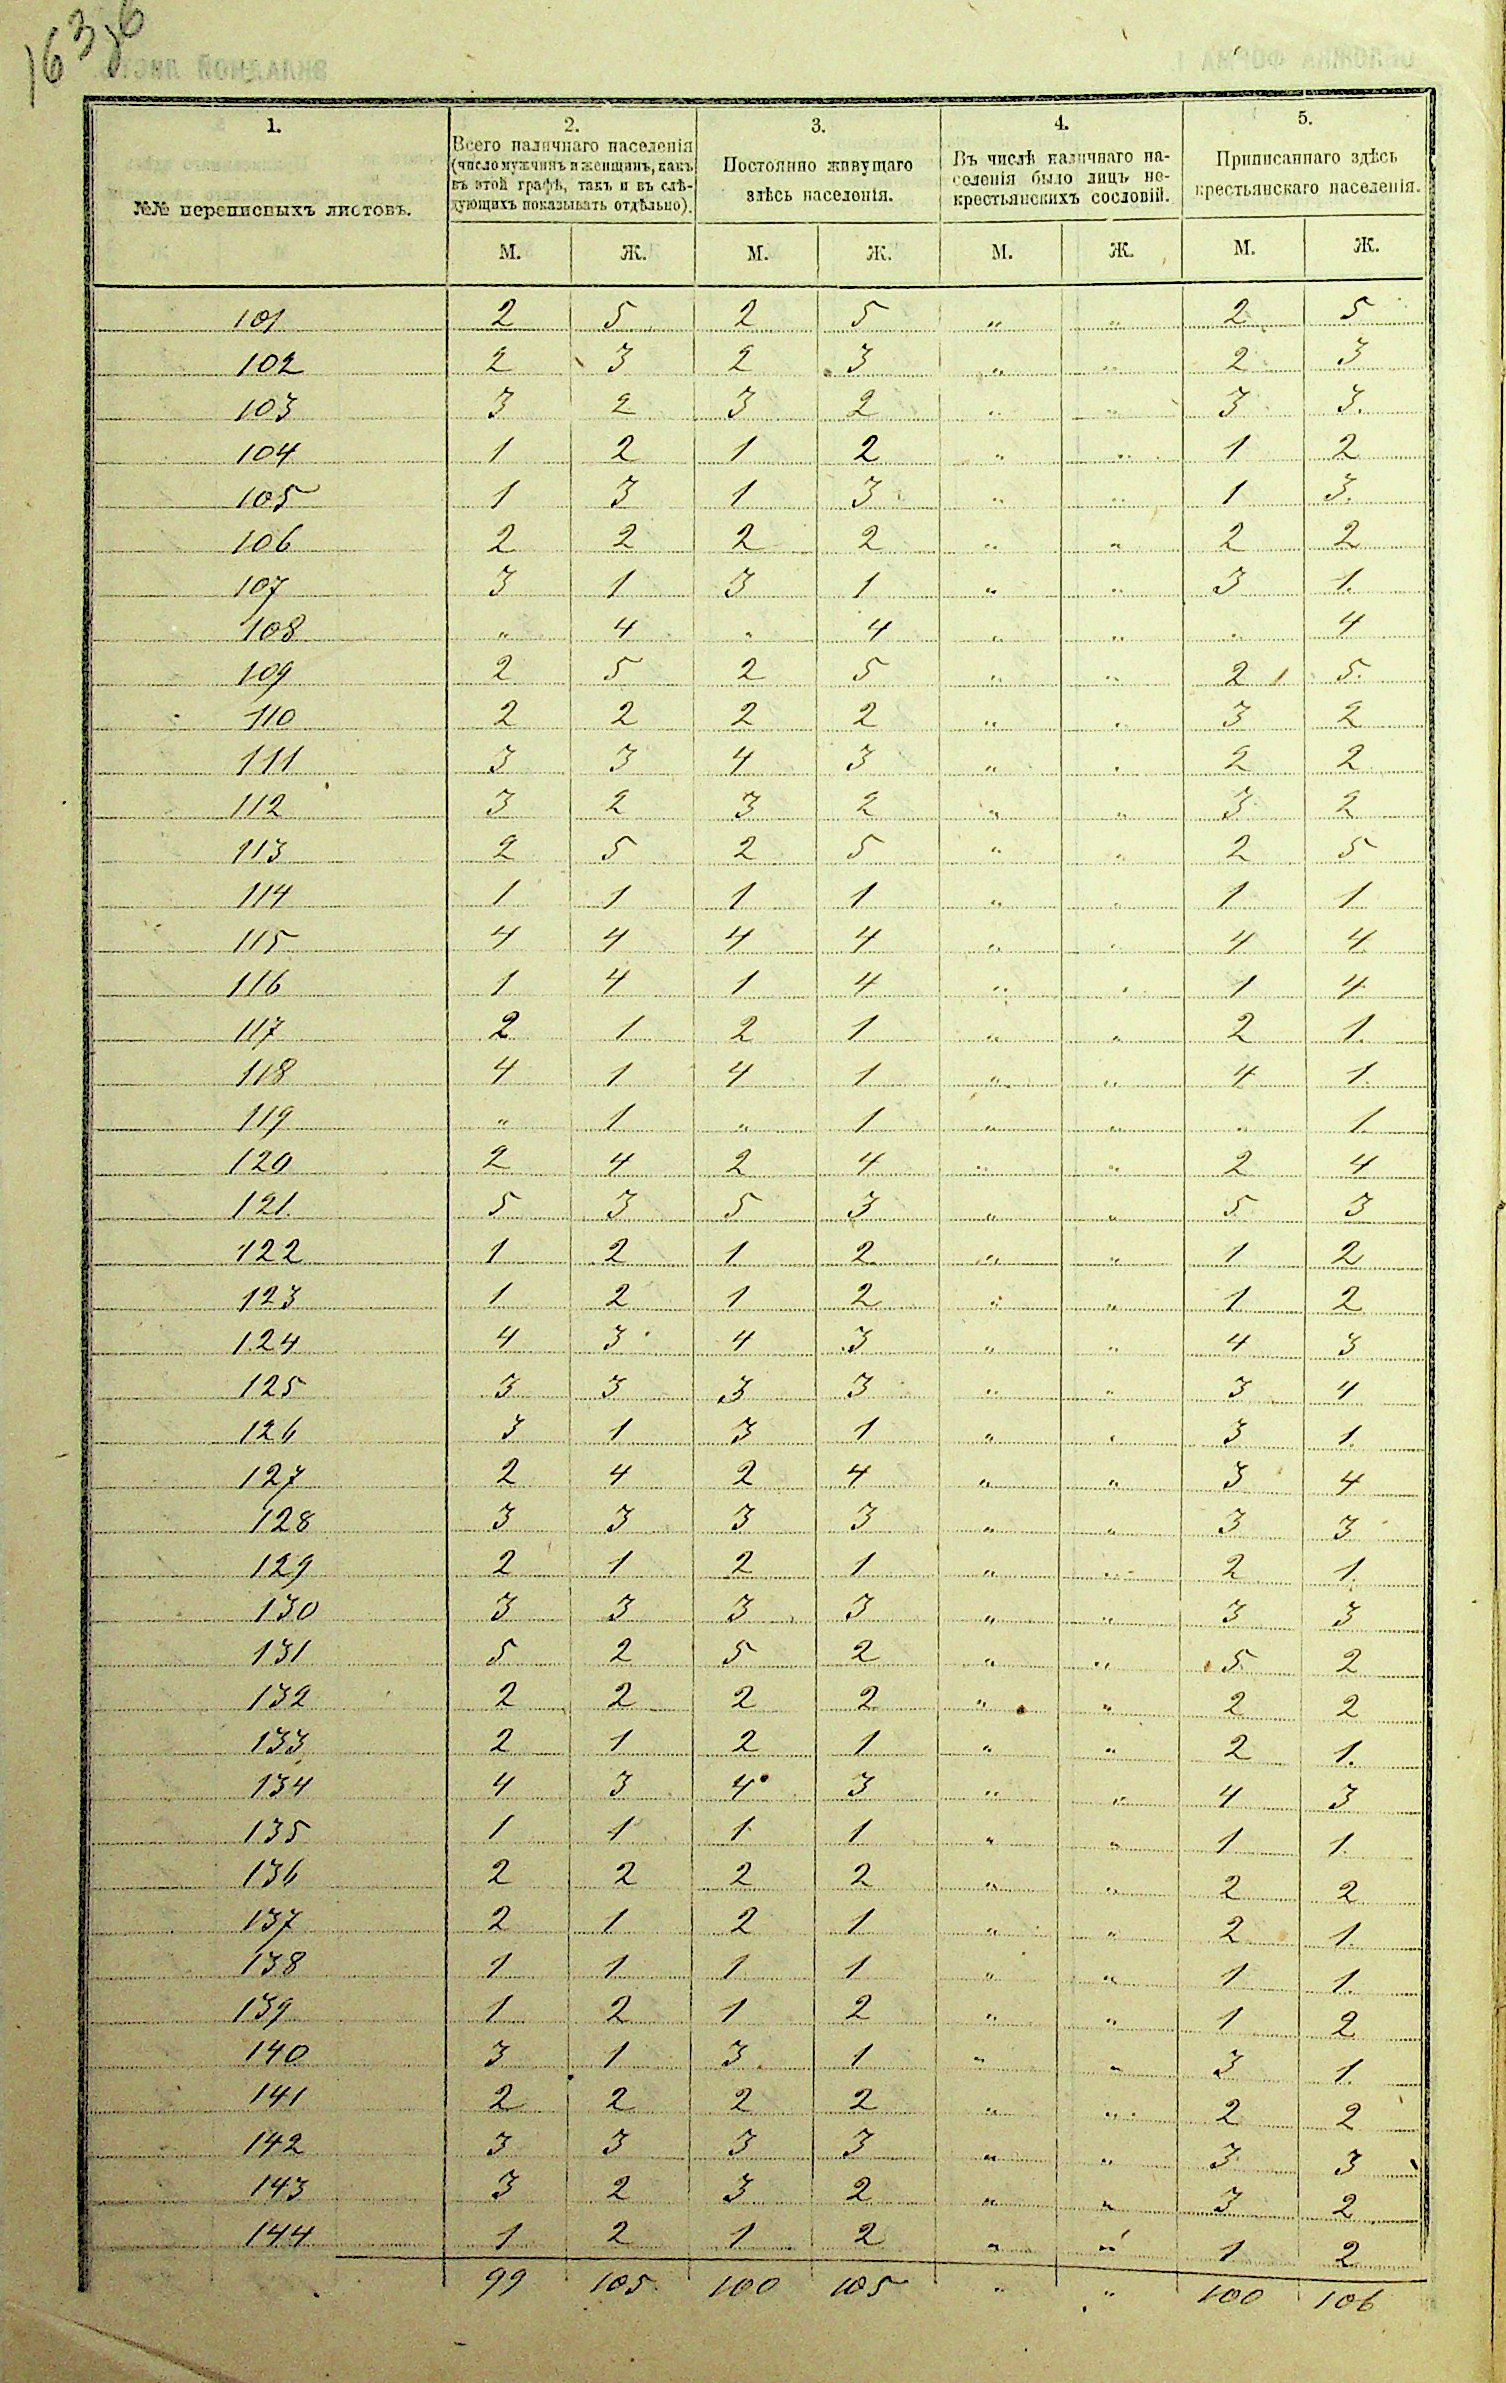 163 об
1. 2. 3. 4. 5.
№№ переписныхъ листовъ.
Всего наличнаго населенія
(число мужчинъ и женщинъ, какъ
въ этой графѣ, такъ и въ слѣ-
дующихъ показывать отдѣльно).
Постоянно живущаго
здѣсь населенія.
Въ числѣ наличнаго на-
селенія было лицъ не-
крестьянскихъ сословій.
Приписаннаго здѣсь
крестьянскаго населенія.
М. Ж. М. Ж. М. Ж. М. Ж.
101 2 5 2 5 " " 2 5
102 2 3 2 3 " " 2 3
103 3 2 3 2 " " 3 3.
104 1 2 1 2 " " 1 2
105 1 3 1 3 " " 1 3.
106 2 2 2 2 " " 2 2
107 3 1 3 1 " " 3 1.
108 " 4 " 4 " " " 4
109 2 5 2 5 " " 2 5.
110 2 2 2 2 " " 3 2
111 3 3 4 3 " " 2 2
112 3 2 3 2 " " 3 2
113 2 5 2 5 " " 2 5
114 1 1 1 1 " " 1 1
115 4 4 4 4 " " 4 4
116 1 4 1 4 " " 1 4
117 2 1 2 1 " " 2 1.
118 4 1 4 1 " " 4 1.
119 " 1 " 1 " " " 1.
120 2 4 2 4 " " 2 4
121. 5 3 5 3 " " 5 3
122 1 2 1 2 " " 1 2
123 1 2 1 2 " " 1 2
124 4 3 4 3 " " 4 3
125 3 3 3 3 " " 3 4
126 3 1 3 1 " " 3 1.
127 2 4 2 4 " " 3 4
128 3 3 3 3 " " 3 3
129 2 1 2 1 " " 2 1.
130 3 3 3 3 " " 3 3
131 5 2 5 2 " " 5 2
132 2 2 2 2 " " 2 2
133 2 1 2 1 " " 2 1.
134 4 3 4 3 " " 4 3
135 1 1 1 1 " " 1 1.
136 2 2 2 2 " " 2 2
137 2 1 2 1 " " 2 1.
138 1 1 1 1 " " 1 1.
139 1 2 1 2 " " 1 2
140 3 1 3 1 " " 3 1.
141 2 2 2 2 " " 2 2
142 3 3 3 3 " " 3 3
143 3 2 3 2 " " 3 2
144 1 2 1 2 " " 1 2
99 105 100 105 " " 100 106